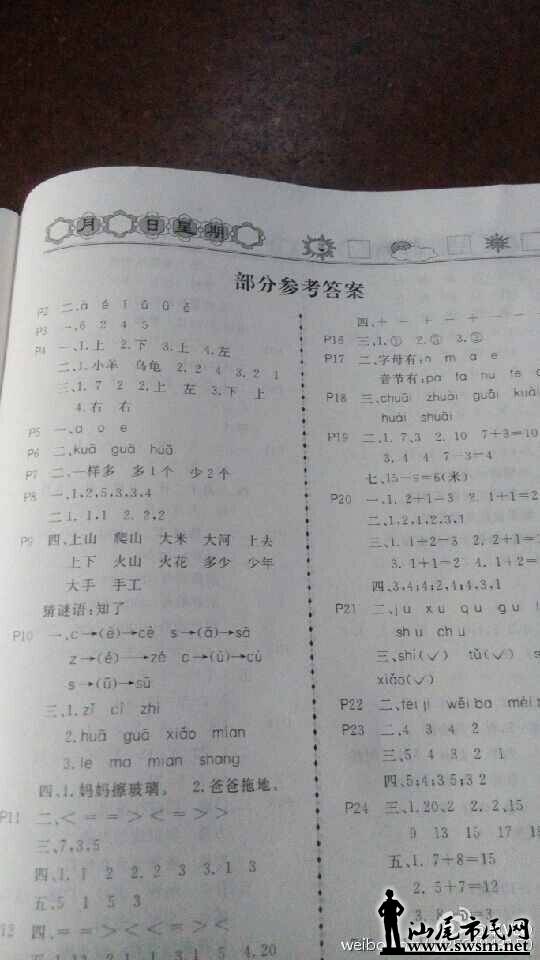 月 日 星期
部分参考答案
P2 二、ā é ī ū ǖ è
P3 一、6 2 4 5
P4 一、1.上 2.下 3.上 4.左
二、1.小羊 乌龟 2.2 4 3.2 1
三、1.7 2 2.上 左 3.下 上
4.右 右
P5 一、a o e
P6 二、kuā guā huā
P7 二、一样多 多1个 少2个
P8 一、1,2,5,3,3,4
二、1.1,1 2.2,2
P9 四、上山 爬山 大米 大河 上去
上下 火山 火花 多少 少年
大手 手工
猜谜语:知了
P10 一、c→(è)→cè s→(ā)→sā
z→(é)→zé c→(ù)→cù
s→(ū)→sū
三、1.zǐ cǐ zhǐ
2.huā guā xiǎo mian
3.le ma mian shang
四、1.妈妈擦玻璃。 2.爸爸拖地。
P11 二、< = = > < = > >
三、7,3,5
四、1.1 2 2.2 3 3.1 3
五、5 1 5 3
四、+ − + − + − −
P16 三、1.① 2.③ 3.②
P17 二、字母有:n m a e
音节有:pa ta nu te
P18 三、chuāi zhuài guǎi kuài
huái shuāi
P19 二、1.7,3 2.10 7+3=10
3.4 4 7−3=4
七、15−9=6(米)
P20 一、1.2+1=3 2.1+1=2
二、1,2,1,2,3,1
三、1.1+2=3 2.2+1=
3.1+1=2 4.1+2=
四、3,4;4,2;4,4,3,1
P21 二、ju xu qu gu
shu chu
三、shi(✓) tǔ(✓)
xiǎo(✓)
P22 二、fēi jī wěi ba méi
P23 二、4 3 4 2
三、5 4 3 2 1
四、5;4;3 5;3 2
P24 三、1.20,2 2.2,15
9 13 15 17
五、1.7+8=15
2.5+7=12
汕尾市民网
www.swsm.net